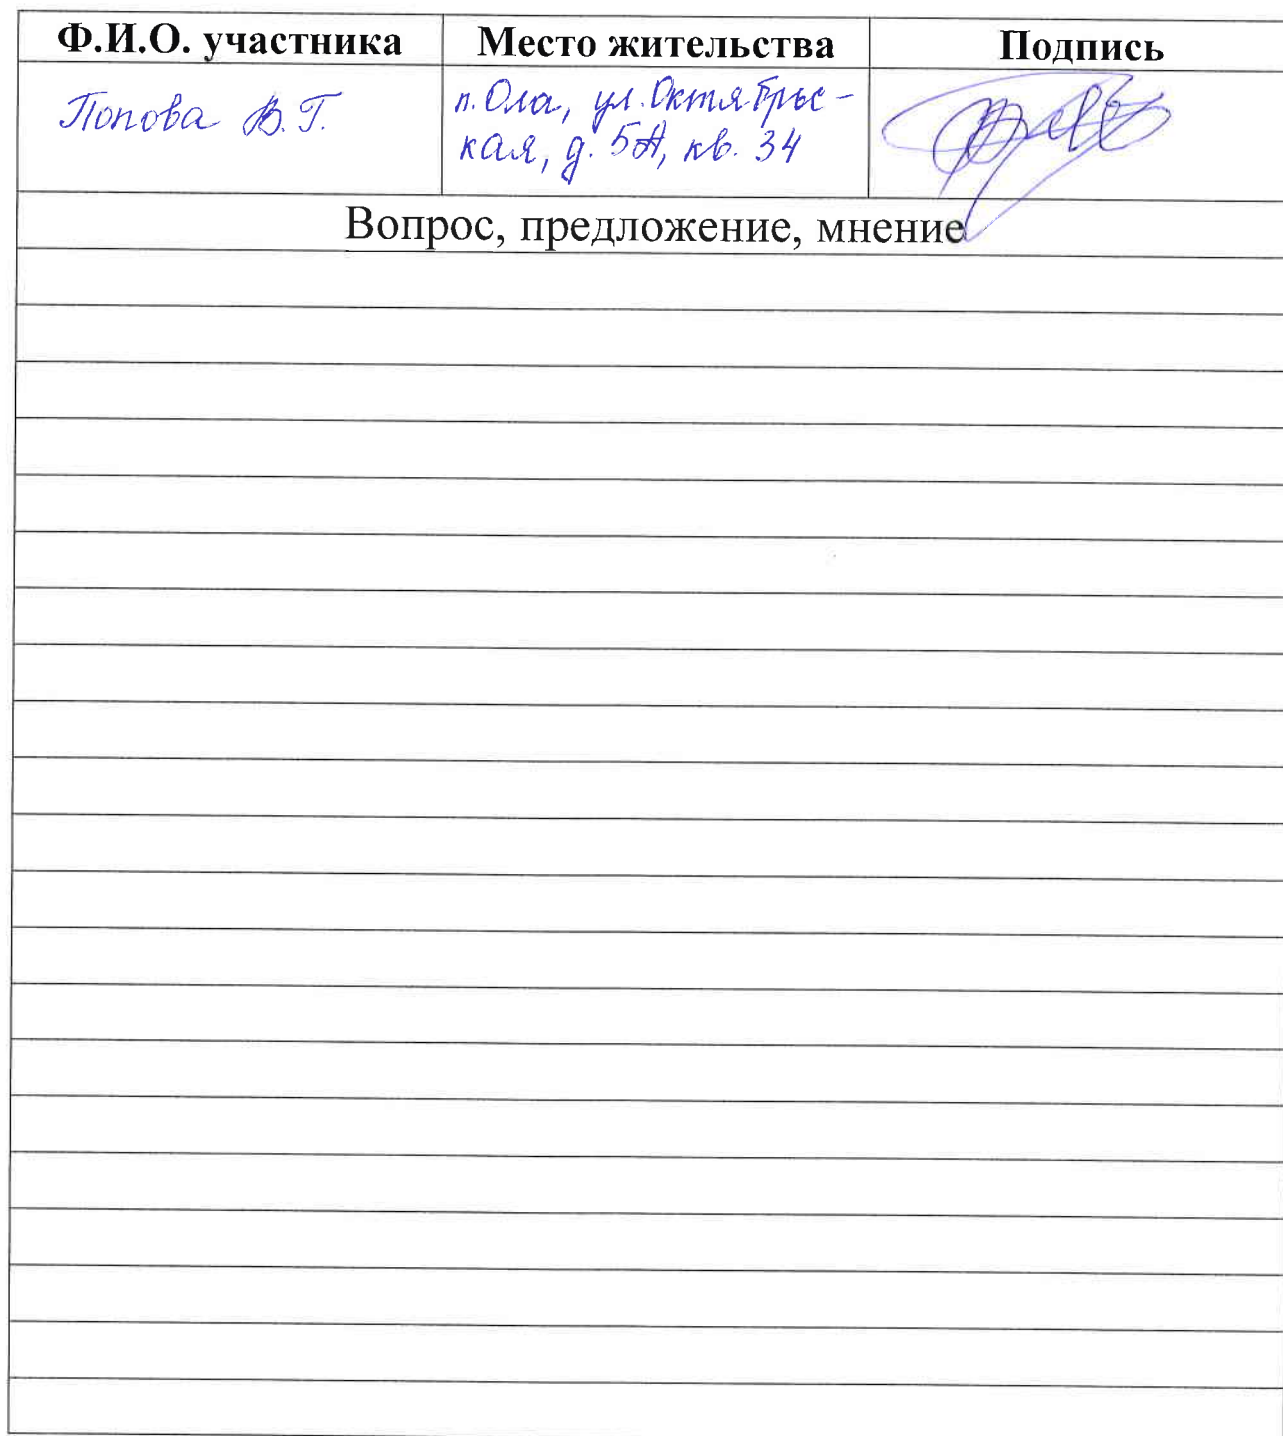 Ф.И.О. участника Место жительства Подпись
Попова В.Г. п. Ола, ул. Октябрьс-
кая, д. 5А, кв. 34
Вопрос, предложение, мнение